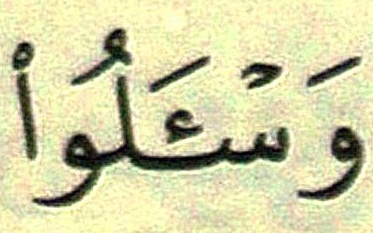 وَسْـَٔلُوا۟